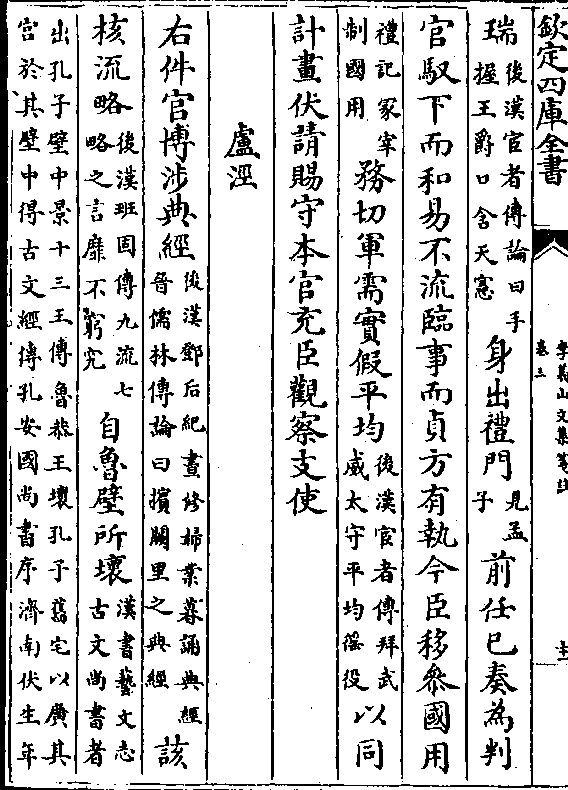 欽定四庫全書
李義山文集箋註
卷三
十二
瑞後漢宦者傳論曰手
握王爵口含天憲身出禮門見孟
子前任已奏為判
官馭下而和易不流臨事而貞方有執今臣移叅國用
禮記冢宰
制國用務切軍需實假平均後漢宦者傳拜武
威太守平均徭役以同
計畫伏請賜守本官充臣觀察支使
盧涇
右件官博涉典經後漢鄧后紀晝修婦業暮誦典經
晉儒林傳論曰擯闕里之典經該
核流略後漢班固傳九流七
略之言靡不窮究自魯壁所壞漢書藝文志
古文尚書者
出孔子壁中景十三王傳魯恭王壞孔子舊宅以廣其
宫於其壁中得古文經傳孔安國尚書序濟南伏生年